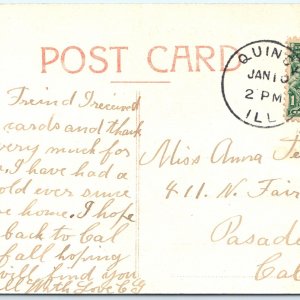 POST CARD
QUINC
JAN 10
2 PM
ILL
Freind I received
cards and thank
very much for
I have had a
old ever since
home. I hope
back to Cal
fall hoping
will find you
With Love C G
Miss Anna
411. N. Fair
Pasade
Cal